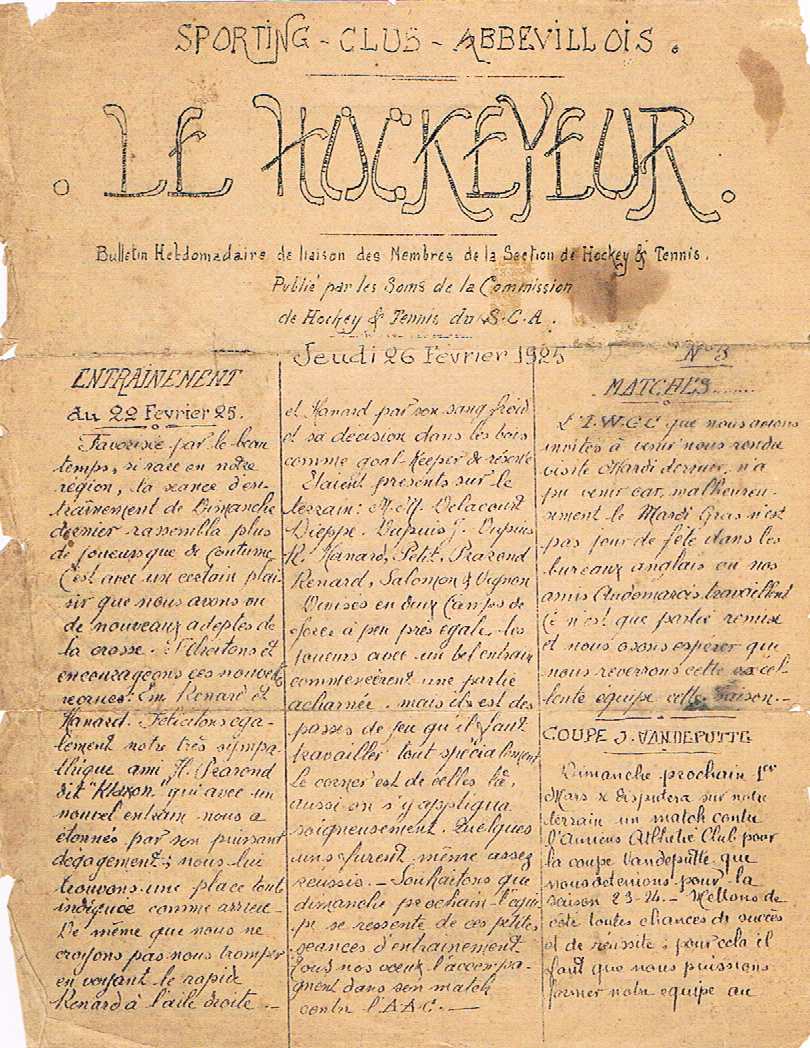 SPORTING - CLUB - ABBEVILLOIS.
LE HOCKEYEUR.
Bulletin Hebdomadaire de liaison des Membres de la Section de Hockey & Tennis.
Publié par les Soins de la Commission
de Hockey & Tennis du S.C.A.
Jeudi 26 Février 1925
N°3
ENTRAÎNEMENT
du 22 Février 25.
Favorisée par le beau
temps, si rare en notre
région, la séance d'en-
traînement de Dimanche
dernier rassembla plus
de joueurs que de coutume
C'est avec un certain plai-
sir que nous avons vu
de nouveaux adeptes de
la crosse. Félicitons et
encourageons ces nouvelles
recrues: Em. Renard et
Hanard. Félicitons éga-
lement notre très sympa-
thique ami H. Prarond
dit "Klaxon" qui avec un
nouvel entrain nous a
étonnés par son puissant
dégagement; nous lui
trouvons une place tout
indiquée comme arrière-
De même que nous ne
croyons pas nous tromper
en voyant le rapide
Renard à l'aile droite. -
et Hanard par son sang froid
et sa décision dans les bois
comme goal-Keeper de réserve
Etaient présents sur le
terrain: M.M. Delacourt
Dieppe. Dupuis J. Dupuis
R. Hanard, Petit, Prarond
Renard, Salomon & Vignon
Divisés en deux Camps de
force à peu près égale, les
joueurs avec un bel entrain
commencèrent une partie
acharnée. mais il est des
passes de jeu qu'il faut
travailler tout spécialement
Le corner est de celles là,
aussi on s'y appliqua
soigneusement. Quelques
uns furent même assez
réussis. - Souhaitons que
dimanche prochain l'équi
pe se ressente de ces petites
séances d'entraînement
Tous nos vœux l'accompa-
gnent dans son match
contre l'A.A.C. -
MATCHES........
L'I.W.G.C que nous avions
invités à venir nous rendre
visite Mardi dernier, n'a
pu venir car, malheureu-
sement le Mardi Gras n'est
pas jour de fête dans les
bureaux anglais où nos
amis Audomarois travaillent
Ce n'est que partie remise
et nous osons espérer que
nous reverrons cette excel-
lente équipe cette saison. -
COUPE J. VANDEPUTTE
Dimanche prochain 1er
Mars se disputera sur notre
terrain un match contre
l'Amiens Athlétic Club pour
la coupe Vandeputte que
nous détenions pour la
saison 23-24. - Mettons de
côté toutes chances de succès
et de réussite; pour cela il
faut que nous puissions
former notre équipe au